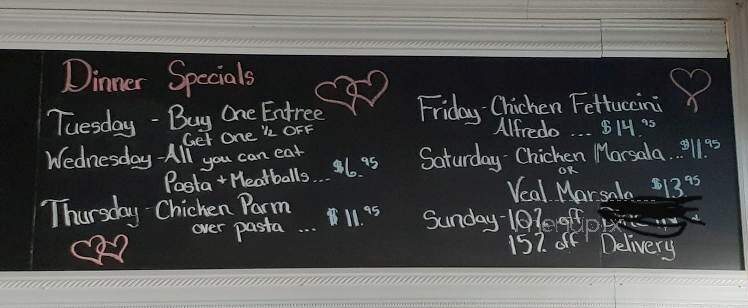 Dinner Specials
Tuesday - Buy One Entree
Get One ½ OFF
Wednesday - All you can eat
Pasta + Meatballs... $6.95
Thursday - Chicken Parm
over pasta ... $11.95
Friday - Chicken Fettuccini
Alfredo ... $14.95
Saturday - Chicken Marsala... $11.95
OR
Veal Marsala... $13.95
Sunday - 10% off
15% off Delivery
menupix